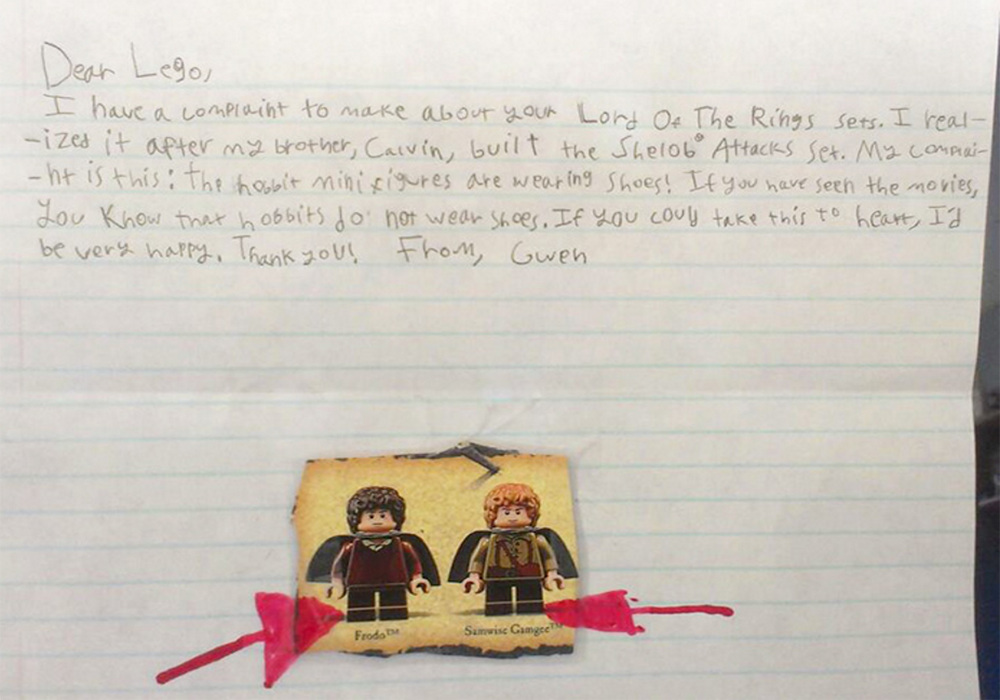 Dear Lego,
I have a complaint to make about your Lord Of The Rings sets. I real-
-ized it after my brother, Calvin, built the Shelob Attacks set. My complai-
-nt is this: the hobbit minifigures are wearing shoes! If you have seen the movies,
you know that hobbits do not wear shoes. If you could take this to heart, I'd
be very happy. Thank you! From, Gwen
Frodo™ Samwise Gamgee™